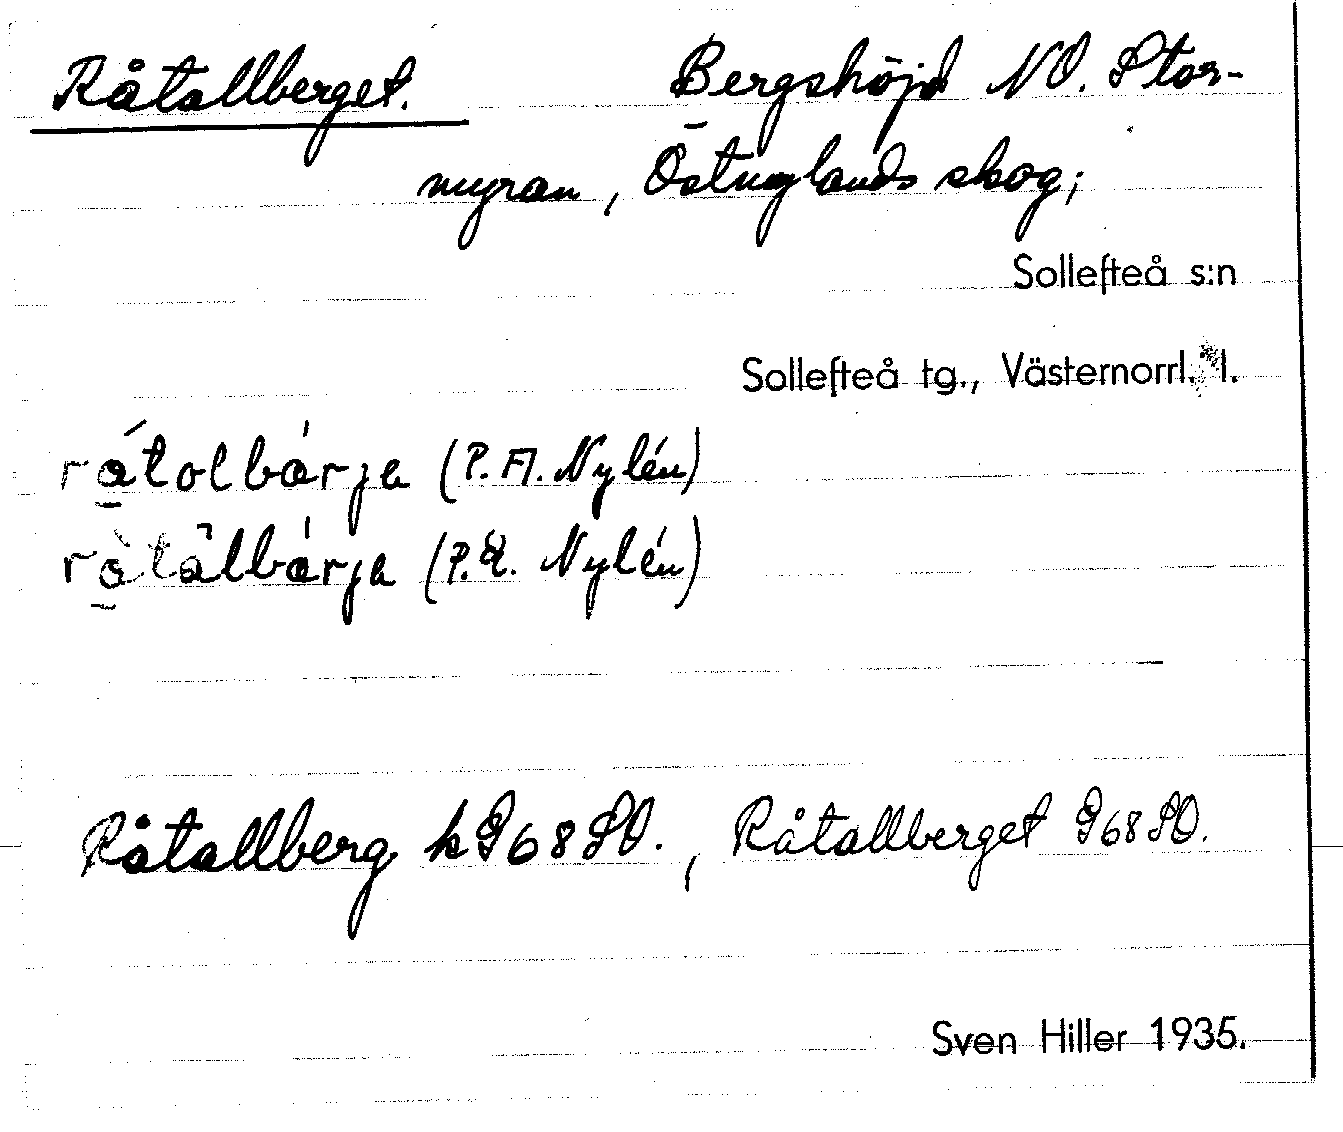 Råtallberget. Bergshöjd NO. Stor-
myran, Östnylands skog;
Sollefteå s:n
Sollefteå tg., Västernorrl. l.
råtolbárja (P. A. Nylén)
råtālbárja (P. E. Nylén)
Råtallberg k G68SO., Råtallberget G68SO.
Sven Hiller 1935.